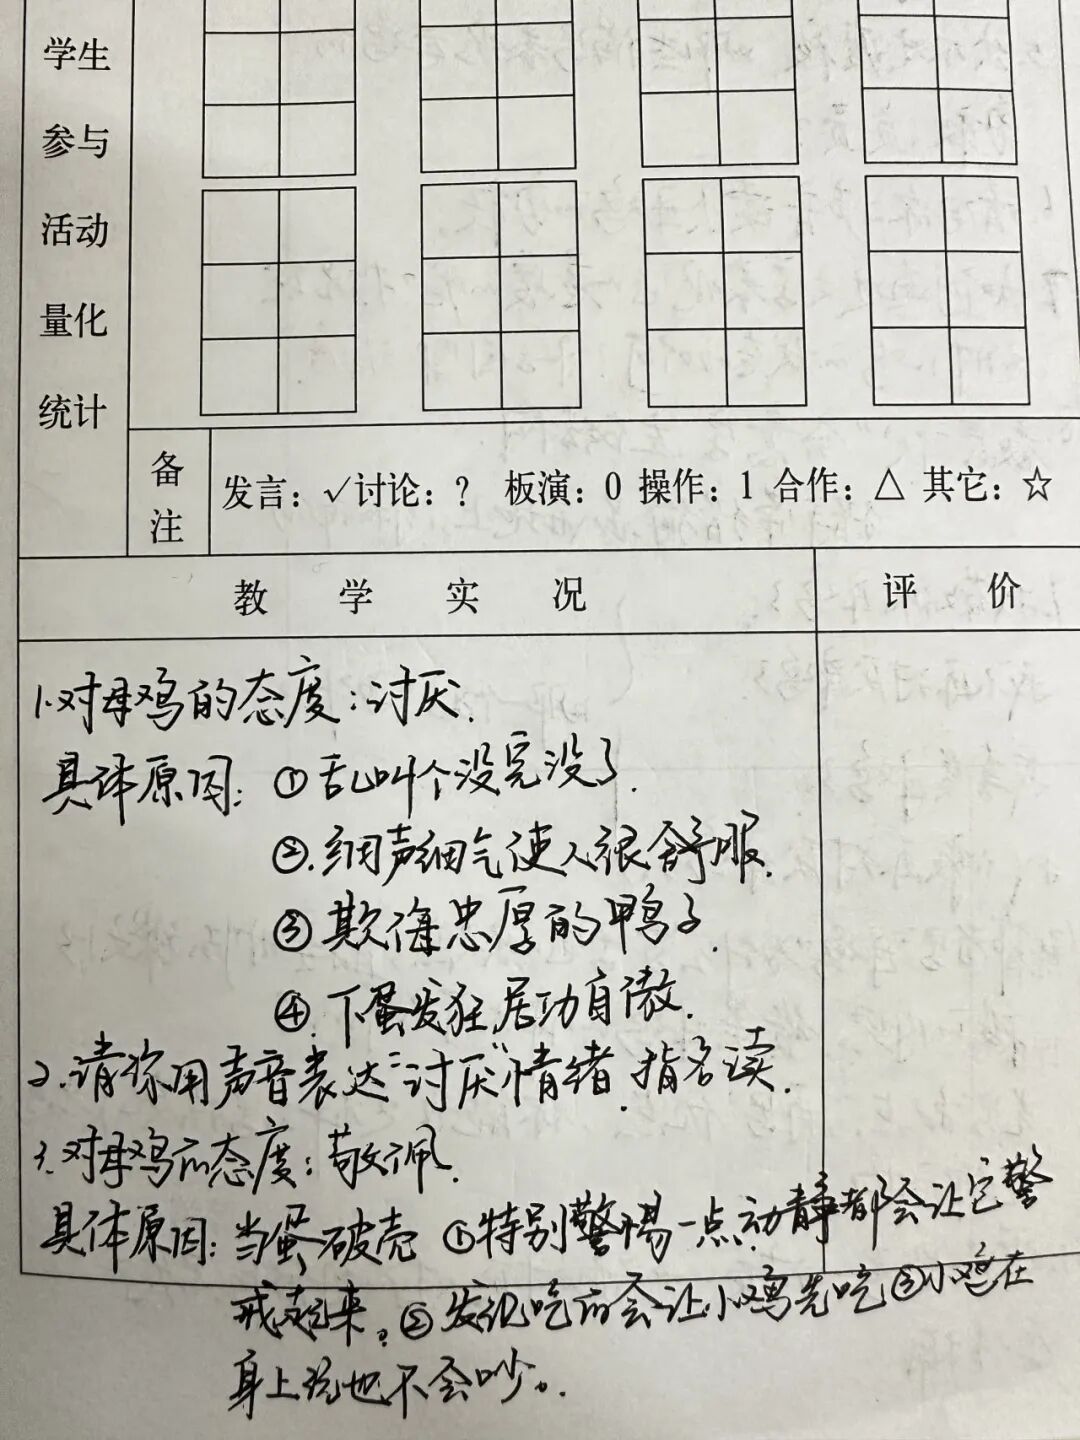 学生
参与
活动
量化
统计
备注
发言：√讨论：? 板演：0 操作：1 合作：△ 其它：☆
教 学 实 况
评 价
1.对母鸡的态度：讨厌.
具体原因：①乱叫个没完没了.
②.细声细气使人很舒服.
③欺侮忠厚的鸭子.
④.下蛋发狂,居功自傲.
2.请你用声音表达“讨厌”情绪.指名读.
3.对母鸡的态度：敬佩.
具体原因：当蛋破壳 ①特别警惕一点动静都会让它警
戒起来。②发现吃的会让小鸡先吃③小鸡在
身上说也不会吵。.